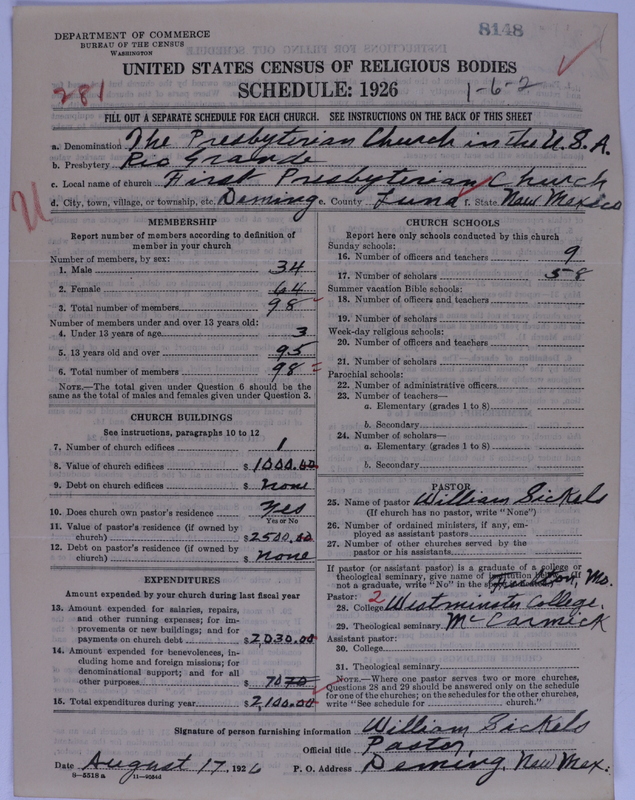 DEPARTMENT OF COMMERCE
BUREAU OF THE CENSUS
WASHINGTON
8148
UNITED STATES CENSUS OF RELIGIOUS BODIES
281
SCHEDULE: 1926
1-6-2
FILL OUT A SEPARATE SCHEDULE FOR EACH CHURCH. SEE INSTRUCTIONS ON THE BACK OF THIS SHEET
a. Denomination The Presbyterian Church in the U.S.A.
b. Presbytery Rio Grande
c. Local name of church First Presbyterian Church
d. City, town, village, or township, etc. Deming e. County Luna f. State New Mexico
MEMBERSHIP
Report number of members according to definition of
member in your church
Number of members, by sex:
1. Male 34
2. Female 64
3. Total number of members 98
Number of members under and over 13 years old:
4. Under 13 years of age 3
5. 13 years old and over 95
6. Total number of members 98
NOTE.—The total given under Question 6 should be the
same as the total of males and females given under Question 3.
CHURCH BUILDINGS
See instructions, paragraphs 10 to 12
7. Number of church edifices 1
8. Value of church edifices $1000.00
9. Debt on church edifices $ none
10. Does church own pastor's residence? yes
Yes or No
11. Value of pastor's residence (if owned by
church) $2500.00
12. Debt on pastor's residence (if owned by
church) $ none
EXPENDITURES
Amount expended by your church during last fiscal year
13. Amount expended for salaries, repairs,
and other running expenses; for im-
provements or new buildings; and for
payments on church debt $2030.00
14. Amount expended for benevolences, in-
cluding home and foreign missions; for
denominational support; and for all
other purposes $ 70
15. Total expenditures during year $2,100.00
CHURCH SCHOOLS
Report here only schools conducted by this church
Sunday schools:
16. Number of officers and teachers 9
17. Number of scholars 58
Summer vacation Bible schools:
18. Number of officers and teachers
19. Number of scholars
Week-day religious schools:
20. Number of officers and teachers
21. Number of scholars
Parochial schools:
22. Number of administrative officers
23. Number of teachers—
a. Elementary (grades 1 to 8)
b. Secondary
24. Number of scholars—
a. Elementary (grades 1 to 8)
b. Secondary
PASTOR
25. Name of pastor William Sickels
(If church has no pastor, write "None")
26. Number of ordained ministers, if any, em-
ployed as assistant pastors
27. Number of other churches served by the
pastor or his assistants
If pastor (or assistant pastor) is a graduate of a college or
theological seminary, give name of institution below (if
not a graduate, write "No" in the Mo.
Pastor: 2
28. College Westminster College.
29. Theological seminary McCormick
Assistant pastor:
30. College
31. Theological seminary
NOTE.—Where one pastor serves two or more churches,
Questions 28 and 29 should be answered only on the schedule
for one of the churches; on the schedules for the other churches,
write "See schedule for church."
Signature of person furnishing information William Sickels
Official title Pastor,
Date August 17, 1926 P. O. Address Deming, New Mex.
8-5518 a